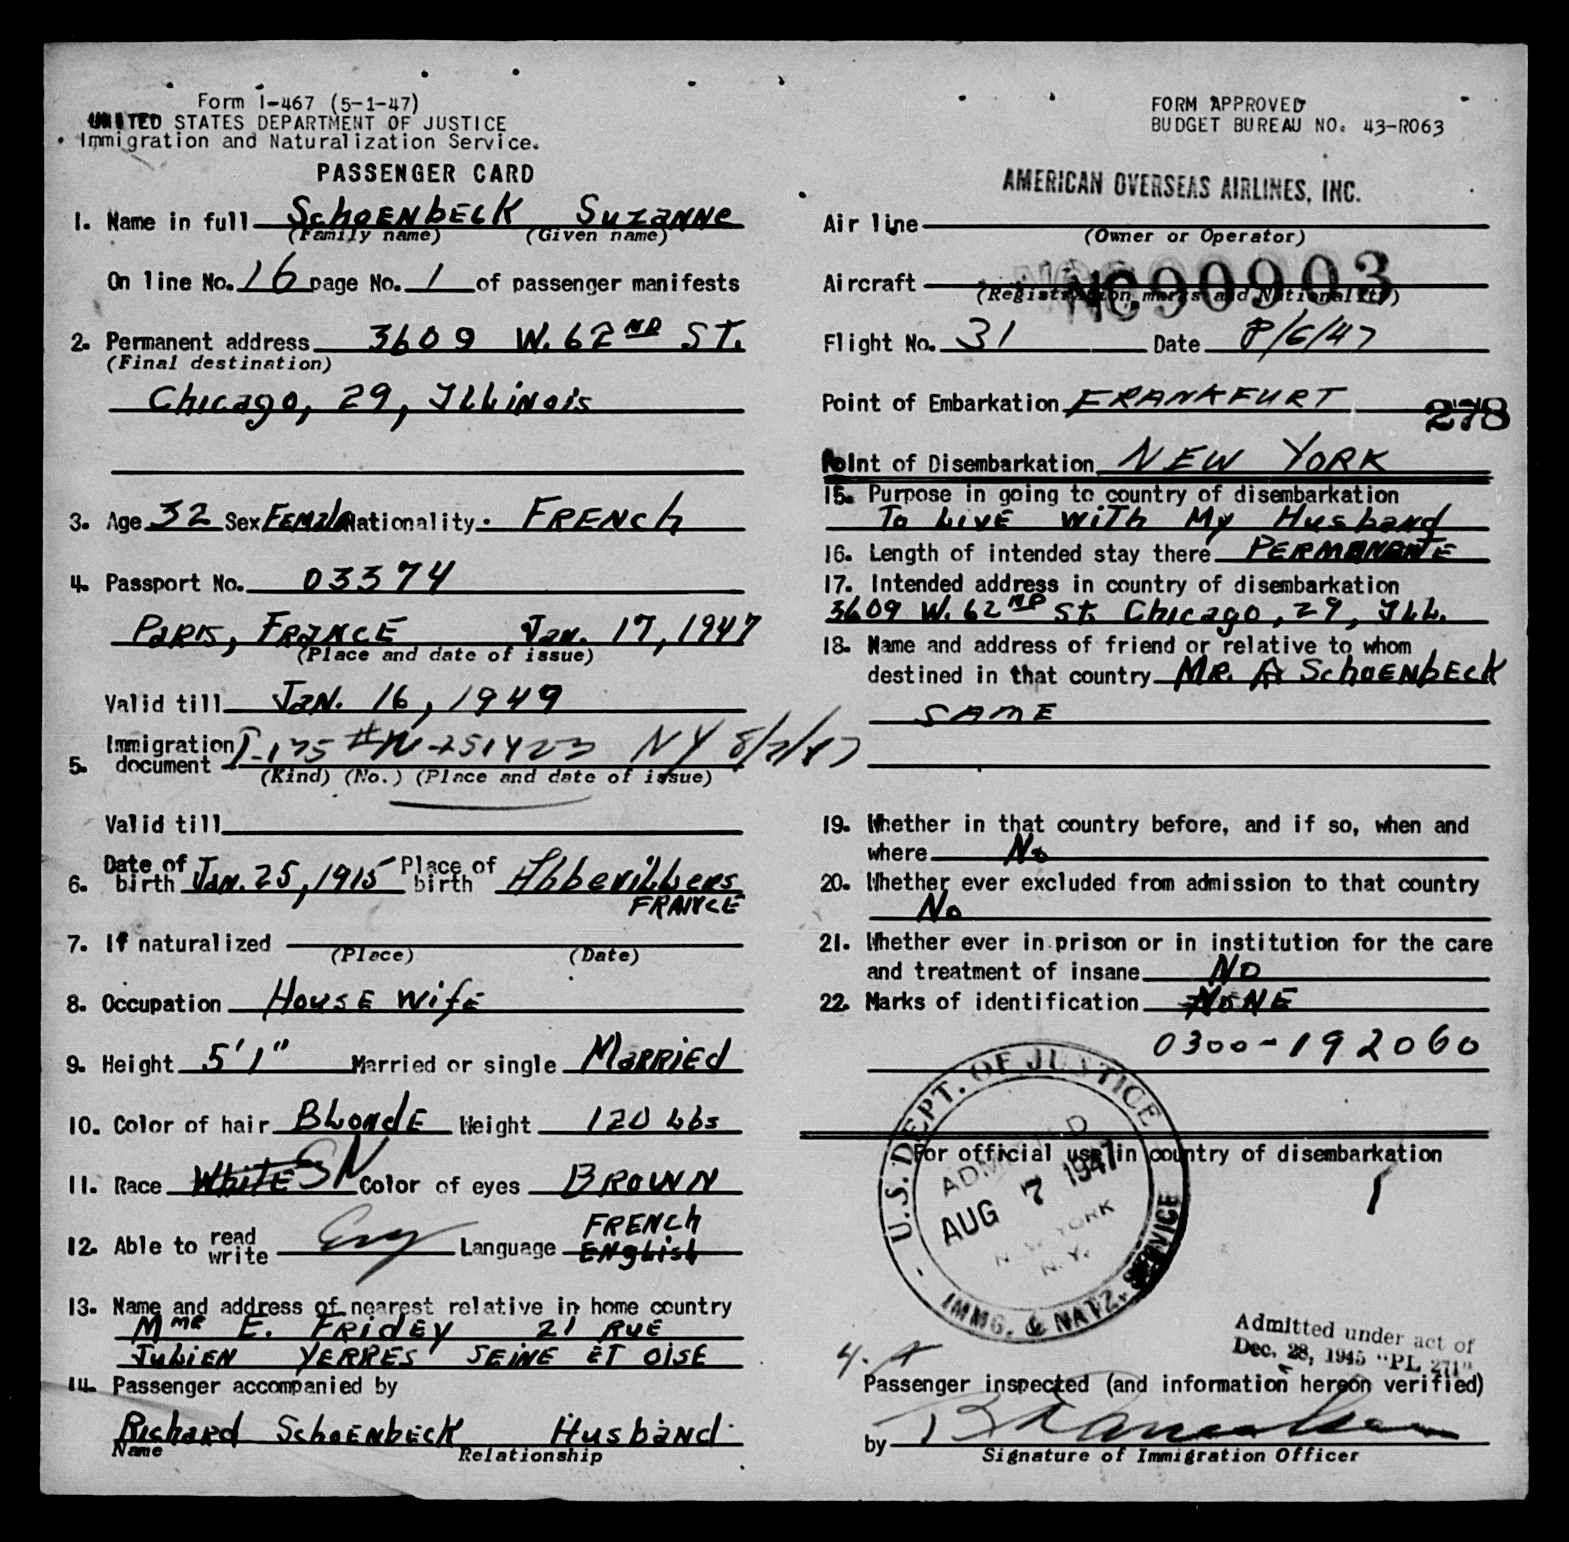 Form I-467 (5-1-47)
UNITED STATES DEPARTMENT OF JUSTICE
Immigration and Naturalization Service.
PASSENGER CARD
1. Name in full SchoENbECK SuzanNe
(Family name) (Given name)
On line No. 16 page No. 1 of passenger manifests
2. Permanent address 3609 W. 62ND ST.
(Final destination)
Chicago, 29, ILLiNois
3. Age 32 Sex FEMalE Nationality FRENCh
4. Passport No. 03374
PaRis, FRaNCE Jan. 17, 1947
(Place and date of issue)
Valid till JaN. 16, 1949
5. Immigration document I-175 # NY 8/7/47
(Kind) (No.) (Place and date of issue)
Valid till
6. Date of birth Jan. 25, 1915 Place of birth AbbeviLLers
FRANCE
7. If naturalized
(Place) (Date)
8. Occupation HousE WifE
9. Height 5'1" Married or single MaRRiEd
10. Color of hair BLondE Weight 120 Lbs
11. Race WhitE Color of eyes BROWN
12. Able to read write Eng Language FRENCh
ENgLish
13. Name and address of nearest relative in home country
MME E. FRIdEY 21 RUE
JuLiEN YERRES SEINE ET OISE
14. Passenger accompanied by
RichaRd SchoENbECK HusbaNd
Name Relationship
FORM APPROVED
BUDGET BUREAU NO. 43-R063
AMERICAN OVERSEAS AIRLINES, INC.
Air line
(Owner or Operator)
Aircraft NC90903
(Registration marks and Nationality)
Flight No. 31 Date 8/6/47
Point of Embarkation FRANKFURT
278
Point of Disembarkation NEW YORK
15. Purpose in going to country of disembarkation
To LivE wiTh My HusbaNd
16. Length of intended stay there PERMANANTE
17. Intended address in country of disembarkation
3609 W. 62ND St. Chicago, 29, ILL.
18. Name and address of friend or relative to whom
destined in that country MR. A SchoENbEcK
SAME
19. Whether in that country before, and if so, when and
where No
20. Whether ever excluded from admission to that country
No
21. Whether ever in prison or in institution for the care
and treatment of insane NO
22. Marks of identification NoNE
0300-192060
For official use in country of disembarkation
U.S. DEPT. OF JUSTICE
ADMITTED
AUG 7 1947
NEW YORK
N.Y.
IMMG. & NATZ. SERVICE
Admitted under act of
Dec. 28, 1945 "PL 271"
Passenger inspected (and information hereon verified)
by
Signature of Immigration Officer